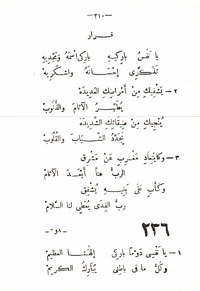 -٢١٠-
قرار
يا نَفسُ بارِكيهِ بارِكي اسمَهُ وَمَجِّديهِ
تَذَكَّري إِحسَانَهُ وَاشكُريهِ
٢ - يَشفِيكِ مِن أَمراضِكِ العَديدَة
يُطَهِّرُ الآثامَ وَالذُّنُوبْ
يُنجيكِ مِن ضِيقاتِكِ الشَّديدَة
يُجَدِّدُ الشَّبابَ وَالقُلُوبْ
٣ - وَكابتِعادِ مَغرِبٍ عَن مَشرِقِ
الرَّبُّ عَنَّا أَبعَدَ الآثامْ
وَكَأَبٍ عَلى بَنِيهِ يُشفِقِ
رَبُّ الفِدَى يُعطي لَنا السَّلامْ
٢٣٦
١ - يا نَفسي دَومًا بارِكي إِلَهَنا العَظيمْ
وَكُلُّ ما في باطِني يُبارِكُ الكَريمْ